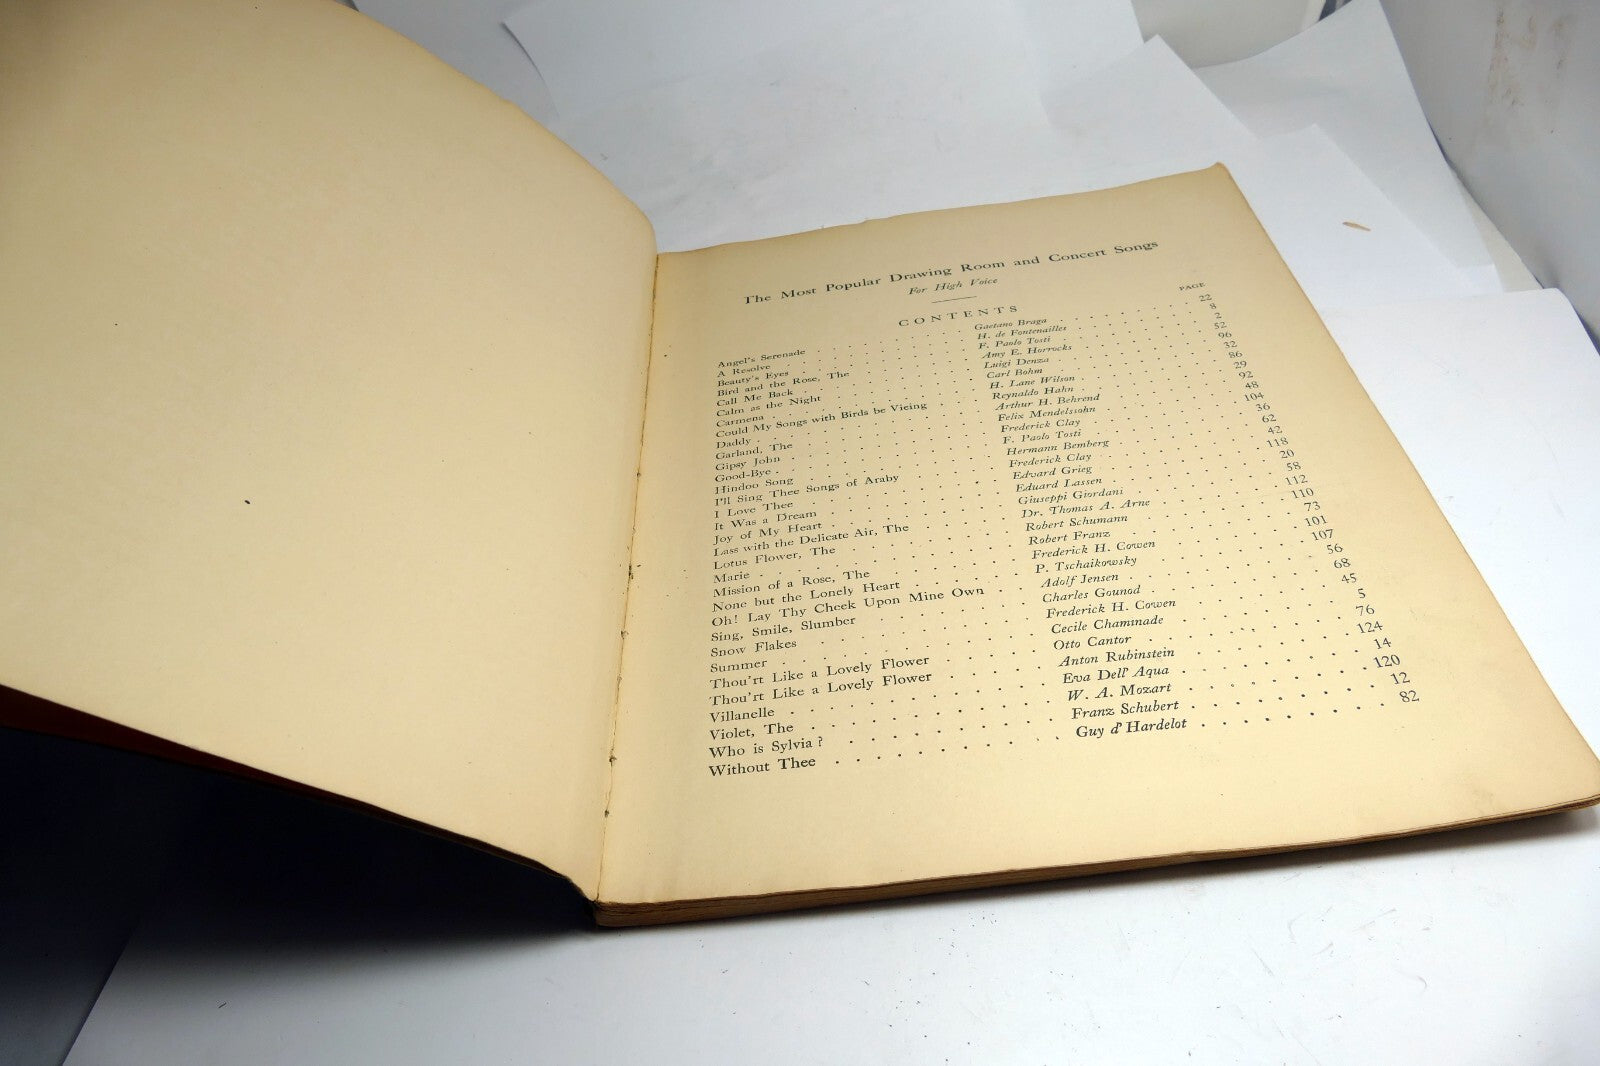 The Most Popular Drawing Room and Concert Songs
For High Voice
CONTENTS
PAGE
Angel's Serenade . . . Gaetano Braga . . . 22
A Resolve . . . H. de Fontenailles . . . 8
Beauty's Eyes . . . F. Paolo Tosti . . . 2
Bird and the Rose, The . . . Amy E. Horrocks . . . 52
Call Me Back . . . Luigi Denza . . . 96
Calm as the Night . . . Carl Bohm . . . 32
Carmena . . . H. Lane Wilson . . . 86
Could My Songs with Birds be Vieing . . . Reynaldo Hahn . . . 29
Daddy . . . Arthur H. Behrend . . . 92
Garland, The . . . Felix Mendelssohn . . . 48
Gipsy John . . . Frederick Clay . . . 104
Good-Bye . . . F. Paolo Tosti . . . 36
Hindoo Song . . . Hermann Bemberg . . . 62
I'll Sing Thee Songs of Araby . . . Frederick Clay . . . 42
I Love Thee . . . Edvard Grieg . . . 118
It Was a Dream . . . Eduard Lassen . . . 20
Joy of My Heart . . . Giuseppi Giordani . . . 58
Lass with the Delicate Air, The . . . Dr. Thomas A. Arne . . . 112
Lotus Flower, The . . . Robert Schumann . . . 110
Marie . . . Robert Franz . . . 73
Mission of a Rose, The . . . Frederick H. Cowen . . . 101
None but the Lonely Heart . . . P. Tschaikowsky . . . 107
Oh! Lay Thy Cheek Upon Mine Own . . . Adolf Jensen . . . 56
Sing, Smile, Slumber . . . Charles Gounod . . . 68
Snow Flakes . . . Frederick H. Cowen . . . 45
Summer . . . Cecile Chaminade . . . 5
Thou'rt Like a Lovely Flower . . . Otto Cantor . . . 76
Thou'rt Like a Lovely Flower . . . Anton Rubinstein . . . 124
Villanelle . . . Eva Dell' Aqua . . . 14
Violet, The . . . W. A. Mozart . . . 120
Who is Sylvia? . . . Franz Schubert . . . 12
Without Thee . . . Guy d' Hardelot . . . 82